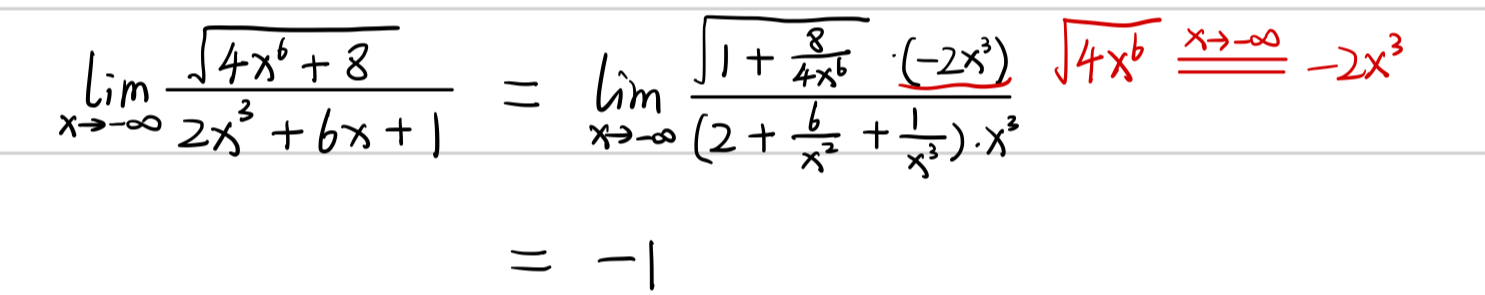 lim_{x→-∞} \frac{\sqrt{4x^6+8}}{2x^3+6x+1} = lim_{x→-∞} \frac{\sqrt{1+\frac{8}{4x^6}} \cdot (-2x^3)}{(2+\frac{6}{x^2}+\frac{1}{x^3}) \cdot x^3} \sqrt{4x^6} \xlongequal{x→-∞} -2x^3
= -1